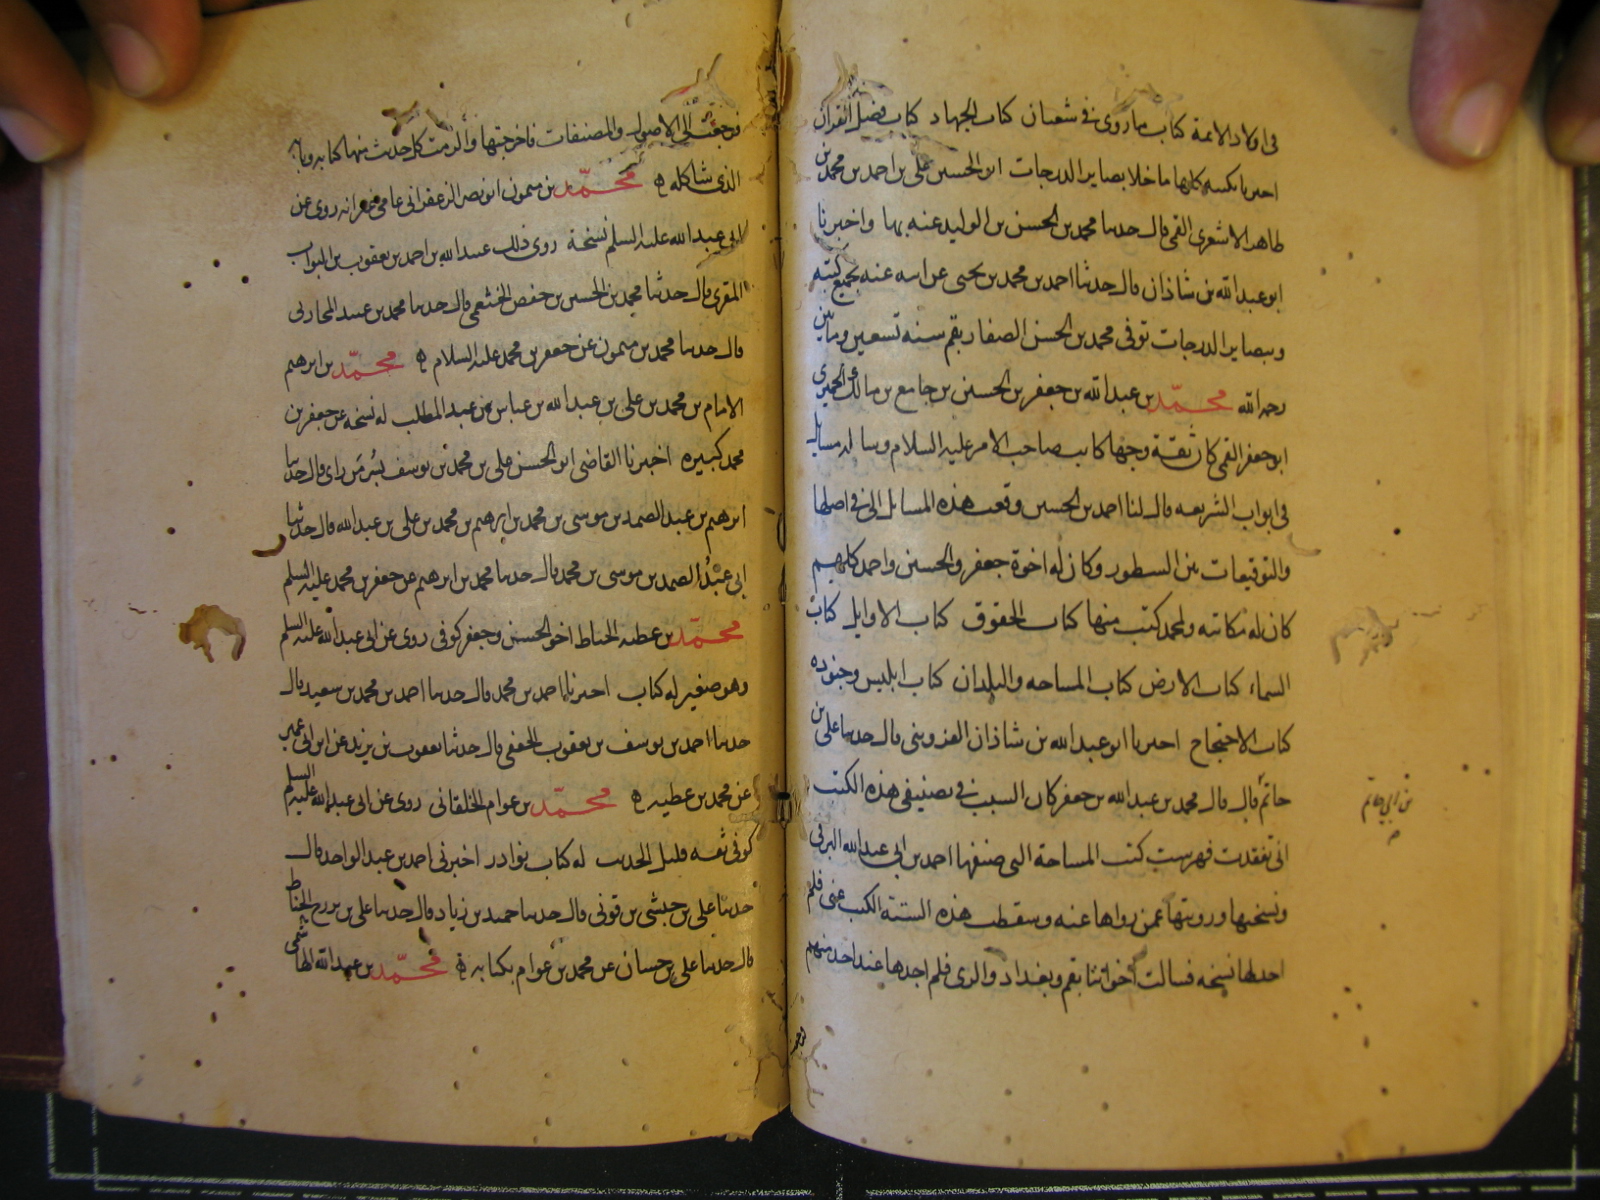 فى اولاد الائمة كتاب ما روى فى شعبان كتاب الجهاد كتاب فضل القران
اخبرنا بكتبه كلها ما خلا بصاير الدرجات ابو الحسين على بن احمد بن محمد بن
طاهر الاشعرى القمى قال حدثنا محمد بن الحسن بن الوليد عنه بها واخبرنا
ابو عبد الله بن شاذان قال حدثنا احمد بن محمد بن يحيى عن ابيه عنه بجميع كتبه
وببصاير الدرجات توفى محمد بن الحسن الصفار بقم سنه تسعين وماتين
رحمه الله محمّد بن عبد الله بن جعفر بن الحسين بن جامع بن مالك الحميرى
ابو جعفر القمى كان ثقة وجها كاتب صاحب الامر عليه السلام وساله مسايل
فى ابواب الشريعه قال لنا احمد بن الحسين وقعت هذه المسائل الى فى اصلها
والتوقيعات بين السطور وكان له اخوة جعفر والحسين واحمد كلهم
كان له مكاتبه ولمحمد كتب منها كتاب الحقوق كتاب الاوايل كتاب
السماء كتاب الارض كتاب المساحه والبلدان كتاب ابليس وجنوده
كتاب الاحتجاج اخبرنا ابو عبد الله بن شاذان القزوينى قال حدثنا على بن
حاتم قال قال محمد بن عبد الله بن جعفر كان السبب فى تصنيفى هذه الكتب
انى تفقدت فهرست كتب المساحة التى صنفها احمد بن ابى عبد الله البرقى
ونسختها ورويتها عمن رواها عنه وسقطت هذه الستة الكتب عنى فلم
اجد لها نسخه فسالت اخواننا بقم وبغداد والرى فلم اجدها عند احد منهم
بن ابى حاتم
فرجعت
فرجعت الى الاصول والمصنفات فاخرجتها والزمت كل حديث منها كتابه وبابه
الذى شاكله ه محمّد بن ميمون ابو نصر الزعفرانى عامى غير انه روى عن
ابى عبد الله عليه السلم نسخة روى ذلك عبد الله بن احمد بن يعقوب بن البواب
المقرى قال حدثنا محمد بن الحسين بن حفص الخثعمى قال حدثنا محمد بن عبيد المحاربى
قال حدثنا محمد بن ميمون عن جعفر بن محمد عليه السلام ه محمّد بن ابرهيم
الامام بن محمد بن على بن عبد الله بن عباس بن عبد المطلب له نسخه عن جعفر بن
محمد كبيره اخبرنا القاضى ابو الحسين على بن محمد بن يوسف بسُر مَن راى قال حدثنا
ابرهيم بن عبد الصمد بن موسى بن محمد بن ابرهيم بن محمد بن على بن عبد الله قال حدثنا
ابى عبدُ الصمد بن موسى بن محمد قال حدثنا محمد بن ابرهيم عن جعفر بن محمد عليه السلم
محمّد بن عطيه الحناط اخو الحسن وجعفر كوفى روى عن ابى عبد الله عليه السلم
وهو صغير له كتاب اخبرنا احمد بن محمد قال حدثنا احمد بن محمد بن سعيد قال
حدثنا احمد بن يوسف بن يعقوب الجعفى قال حدثنا يعقوب بن يزيد عن ابن ابى عمير
عن محمد بن عطيه ه محمّد بن عوام الخلقانى روى عن ابى عبد الله عليه السلم
كوفى ثقه قليل الحديث له كتاب نوادر اخبرنى احمد بن عبد الواحد قال
حدثنا على بن حبشى بن قونى قال حدثنا حميد بن زياد قال حدثنا على بن بزرج الحناط
قال حدثنا على بن حسان عن محمد بن عوام بكتابه ه محمّد بن عبد الله الهاشمى